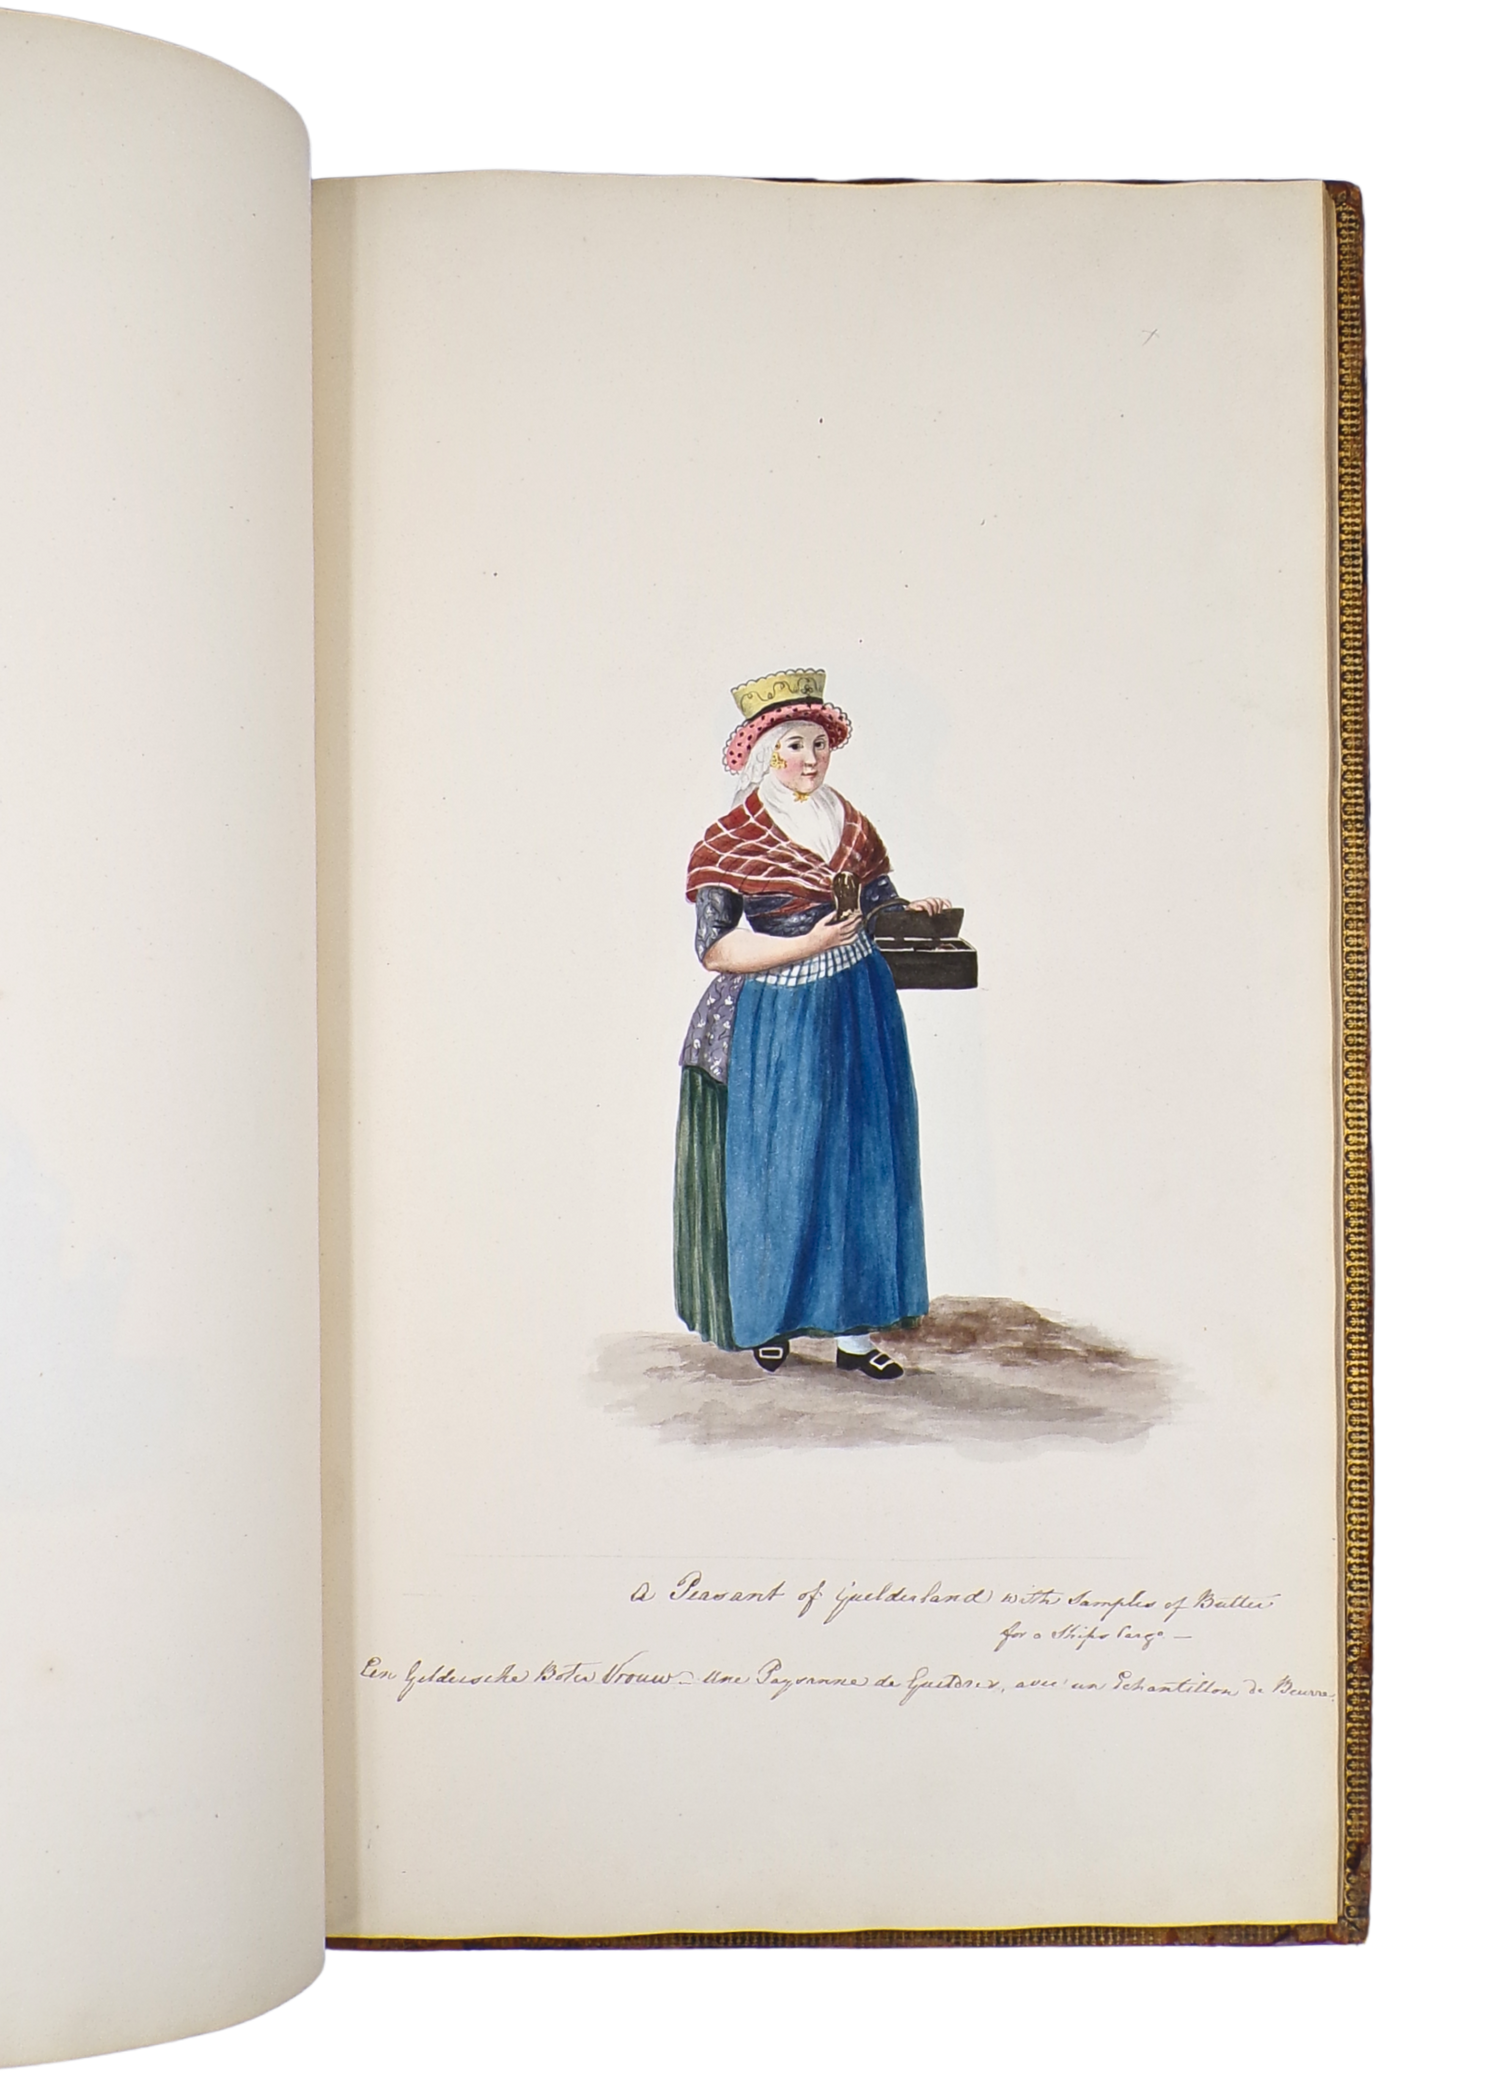 A Peasant of Guelderland with Samples of Butter
for a Ships Cargo —
Een Geldersche Boter Vrouw — Une Paysanne de Gueldres, avec un Echantillon de Beurre.